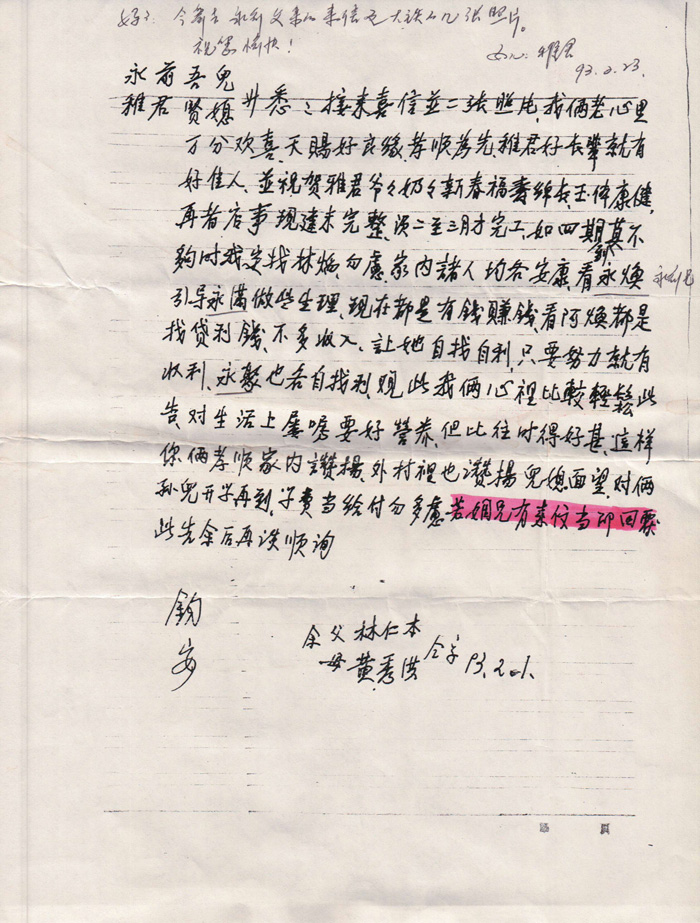 今寄去永前父亲的来信及大铁的几张照片。
祝您愉快!
女儿:雅君
93.2.23.
永前吾兒
雅君贤媳廾悉:接来喜信並二张照片,我俩老心里
万分欢喜,天賜好良缘,孝顺為先,雅君好長輩就有
好佳人,並祝贺雅君爷々奶々新春福壽绵長玉体康健,
再者店事现建未完整,须二至三月才完工,如四期款真不
夠时我定找林焔,勿慮,家内諸人均各安康,看永焕
引导永满做些生理,现在都是有錢賺錢,看阿焕都是
找贷利錢,不多收入,让她自找自利,只要努力就有
收利,永聚也各自找利,观此我俩心裡比較輕鬆此
告,对生活上屡嘱要好营养,但比往时得好甚,這样
你俩孝順家内讚揚,外村裡也讚揚兒媳面望,对俩
孙兒开学再到,学费当给付勿多慮若姻兄有来信当即回露
此先余后再谈顺询
鈞
安
余父林仁本
母黄秀洪 仝字 93.2.1.
第 頁